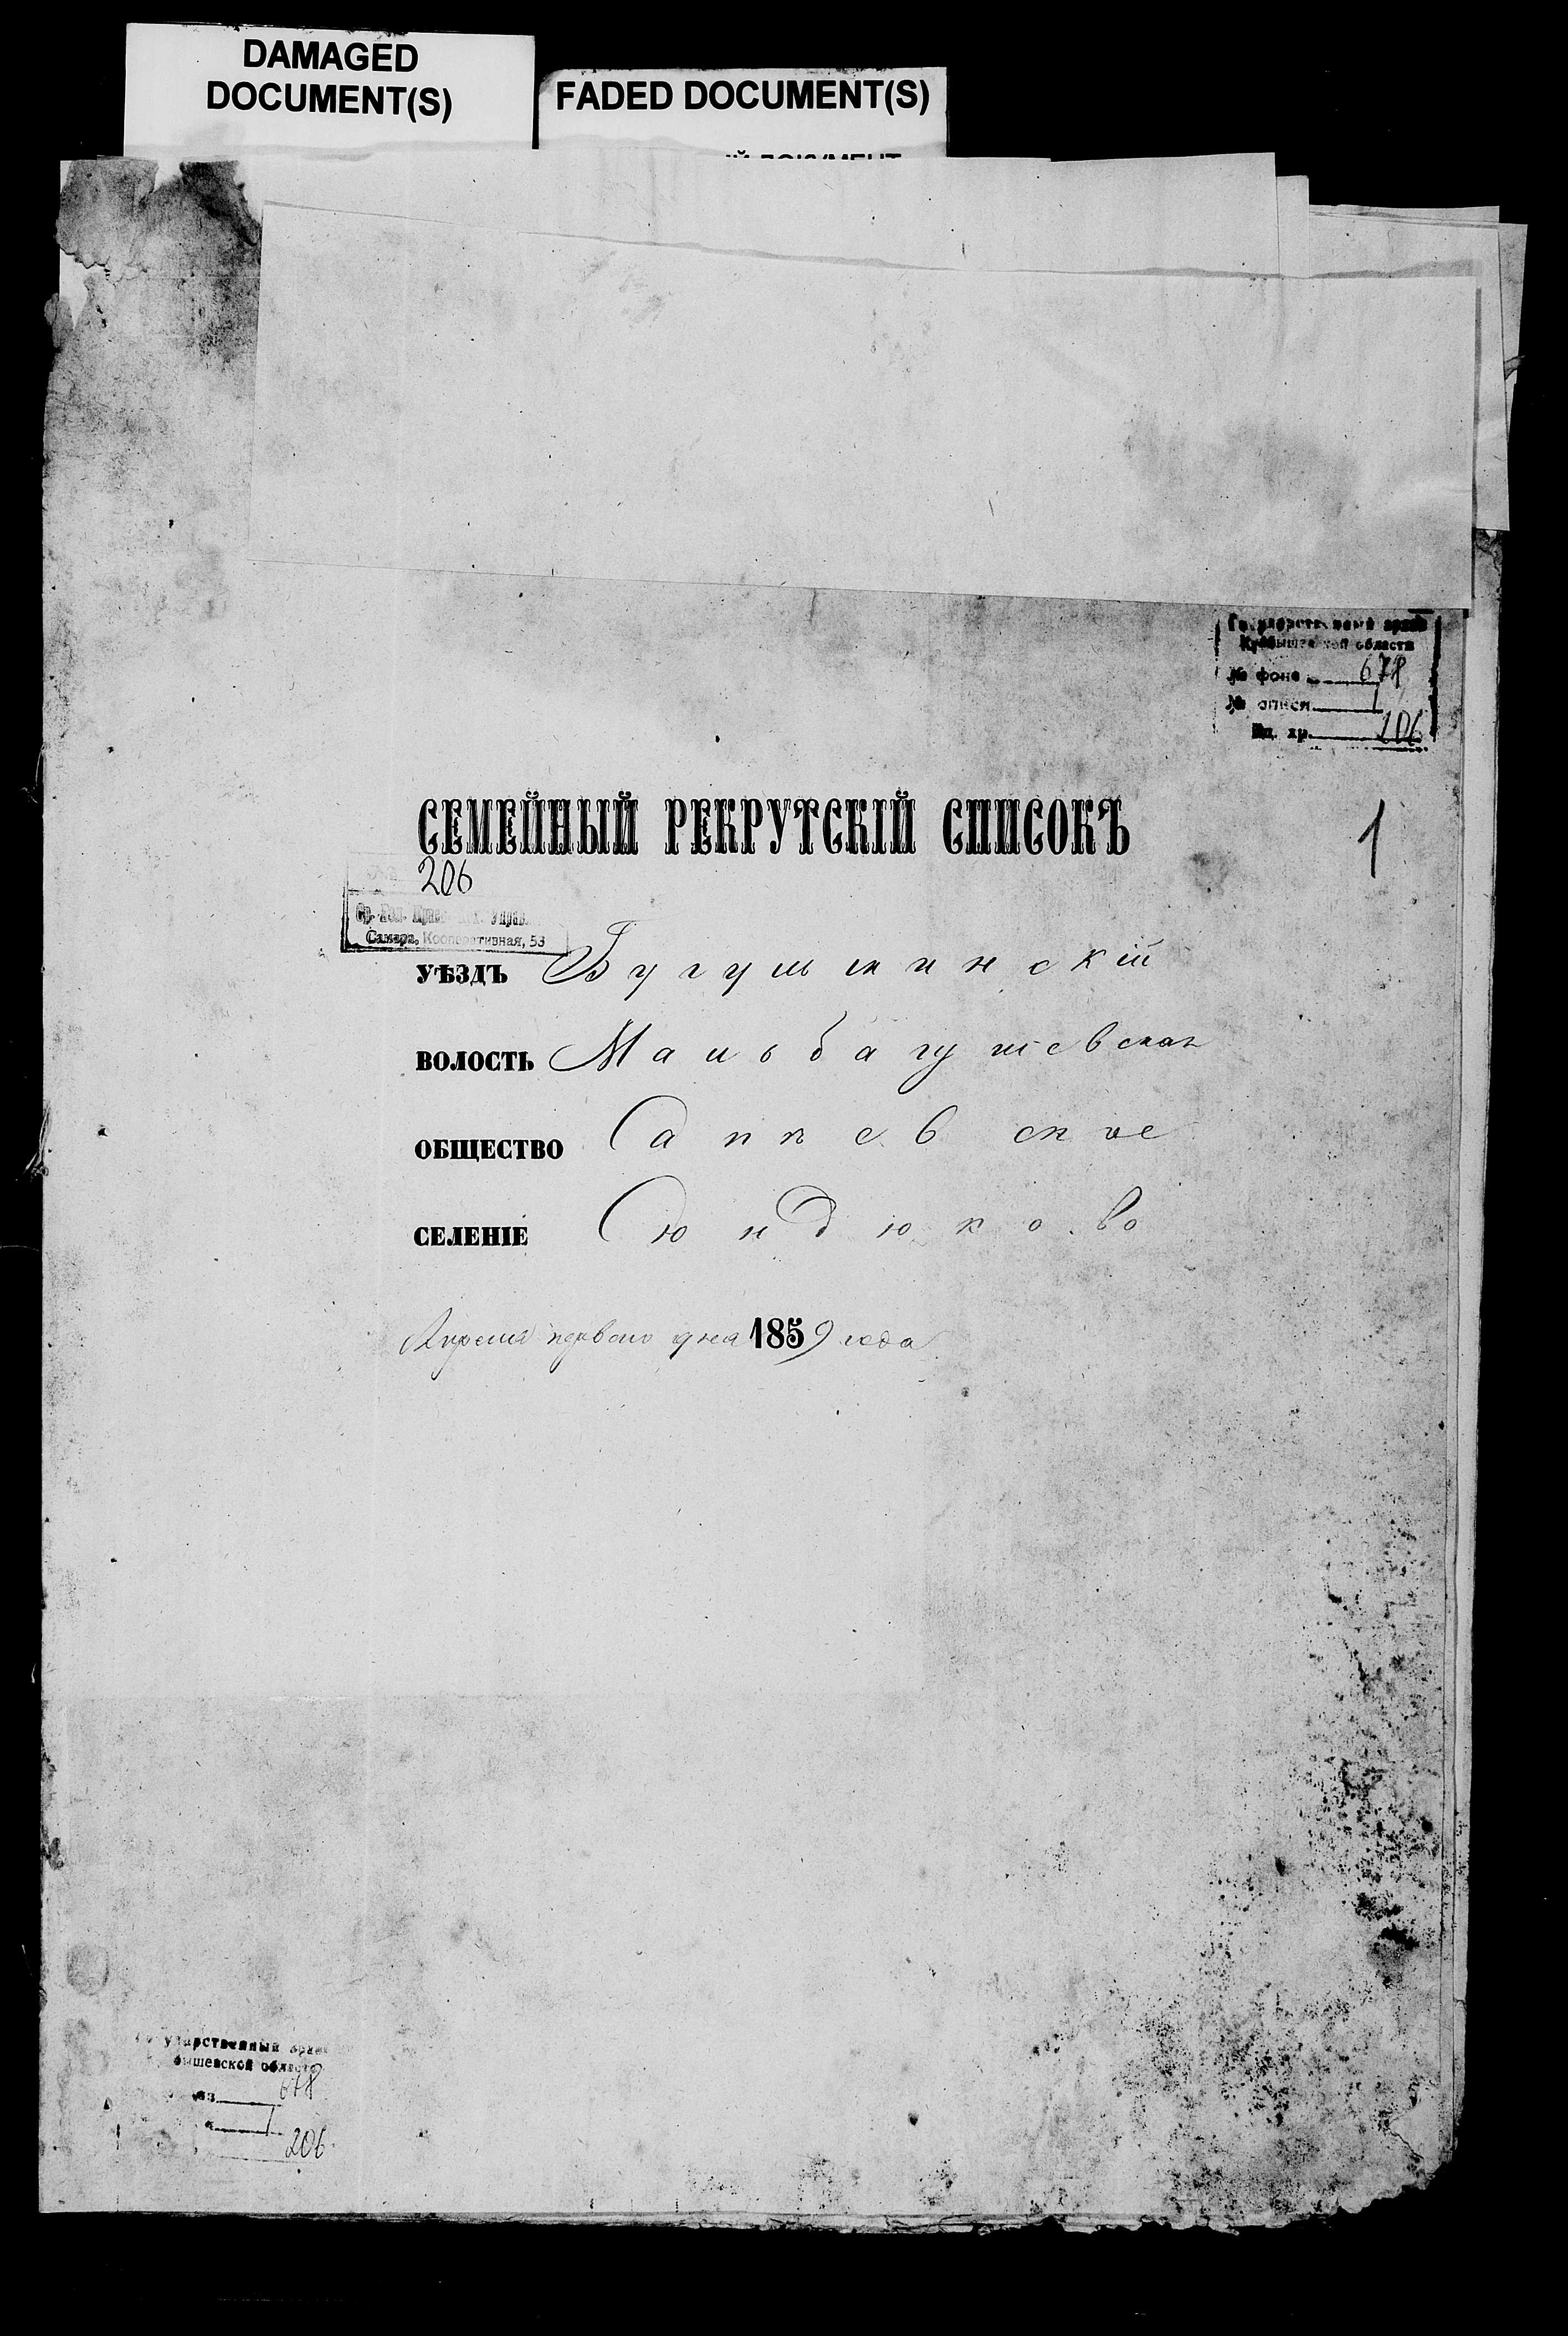 DAMAGED
DOCUMENT(S)
FADED DOCUMENT(S)
Государственный архив
Куйбышевской области
№ фонд 678
№ описи 1
Ед. хр. 206
1
СЕМЕЙНЫЙ РЕКРУТСКІЙ СПИСОКЪ
206
Самара, Кооперативная, 53
УѢЗДЪ Бугульминскій
ВОЛОСТЬ Мальбагушевская
ОБЩЕСТВО Саппевское
СЕЛЕНІЕ Сюндюково
Апреля перваго дня 1859 года
ударственный архив
бышевской области
678
1
206